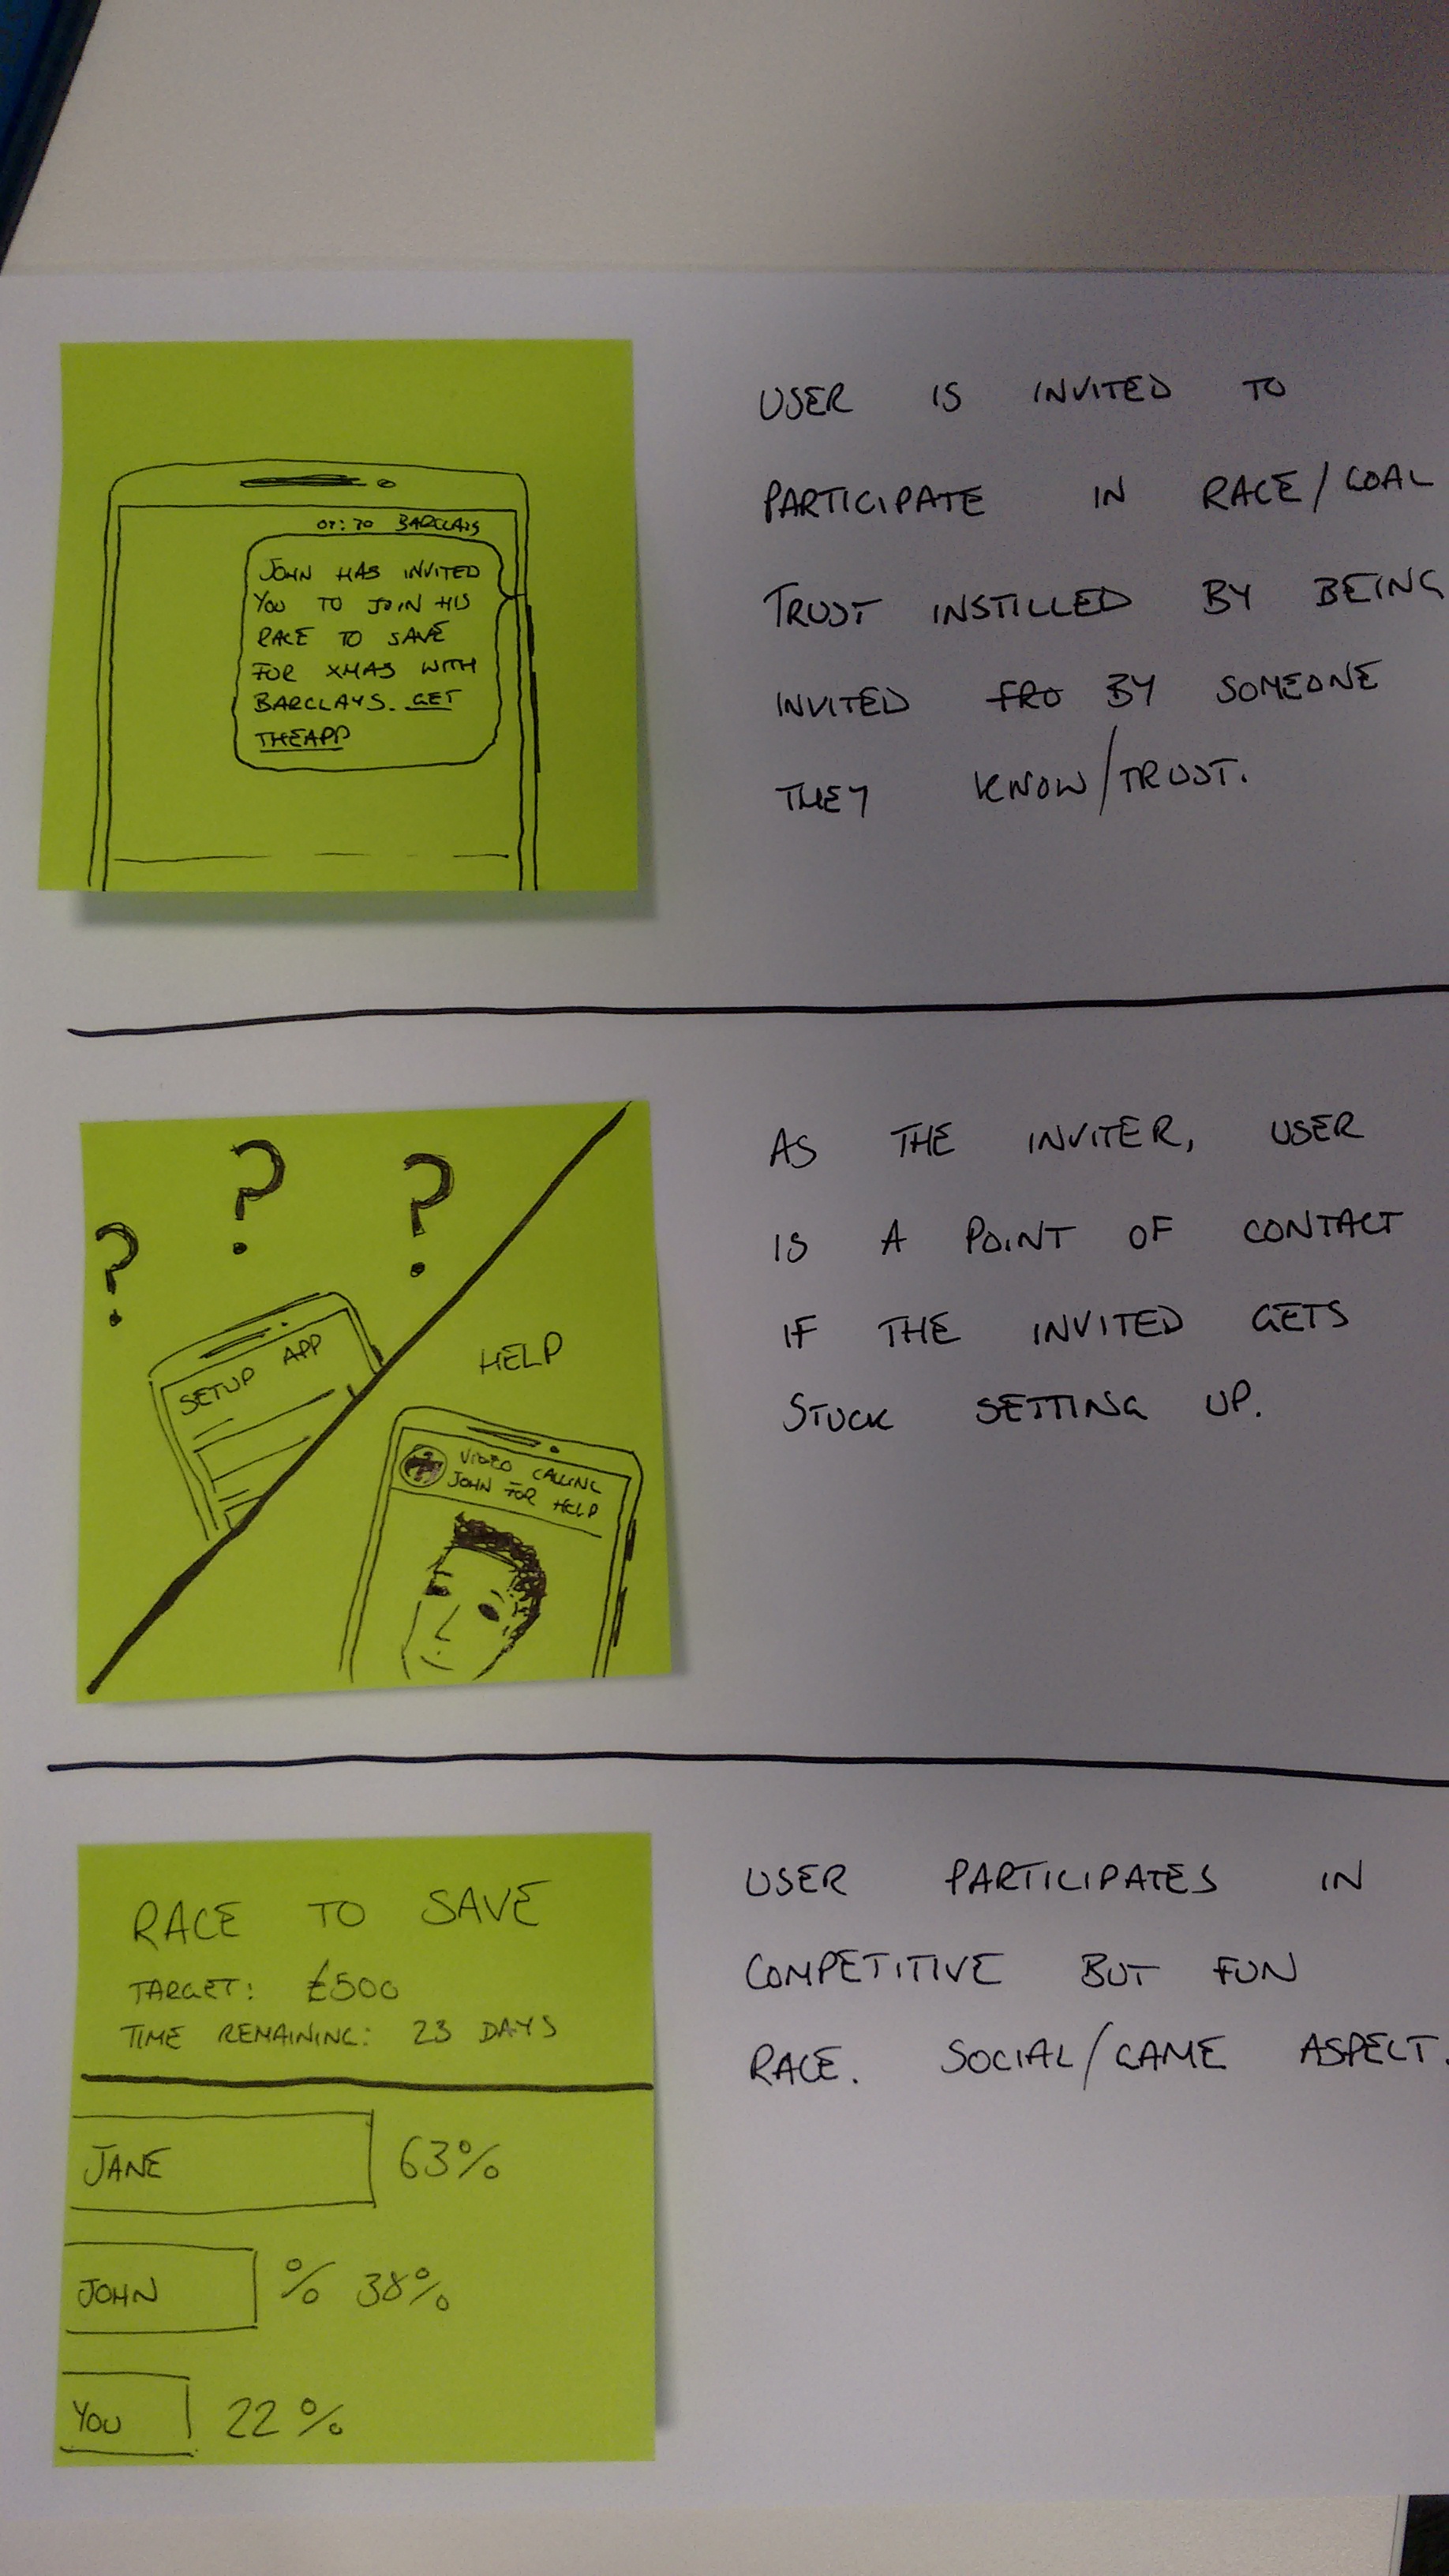 BARCLAYS
JOHN HAS INVITED
YOU TO JOIN HIS
RACE TO SAVE
FOR XMAS WITH
BARCLAYS. GET
THE APP
USER IS INVITED TO
PARTICIPATE IN RACE/GOAL
TRUST INSTILLED BY BEING
INVITED FRO BY SOMEONE
THEY KNOW/TRUST.
? ? ?
SETUP APP
HELP
VIDEO CALLING
JOHN FOR HELP
AS THE INVITER, USER
IS A POINT OF CONTACT
IF THE INVITED GETS
STUCK SETTING UP.
RACE TO SAVE
TARGET: £500
TIME REMAINING: 23 DAYS
JANE 63%
JOHN % 38%
YOU 22%
USER PARTICIPATES IN
COMPETITIVE BUT FUN
RACE. SOCIAL/GAME ASPECT.